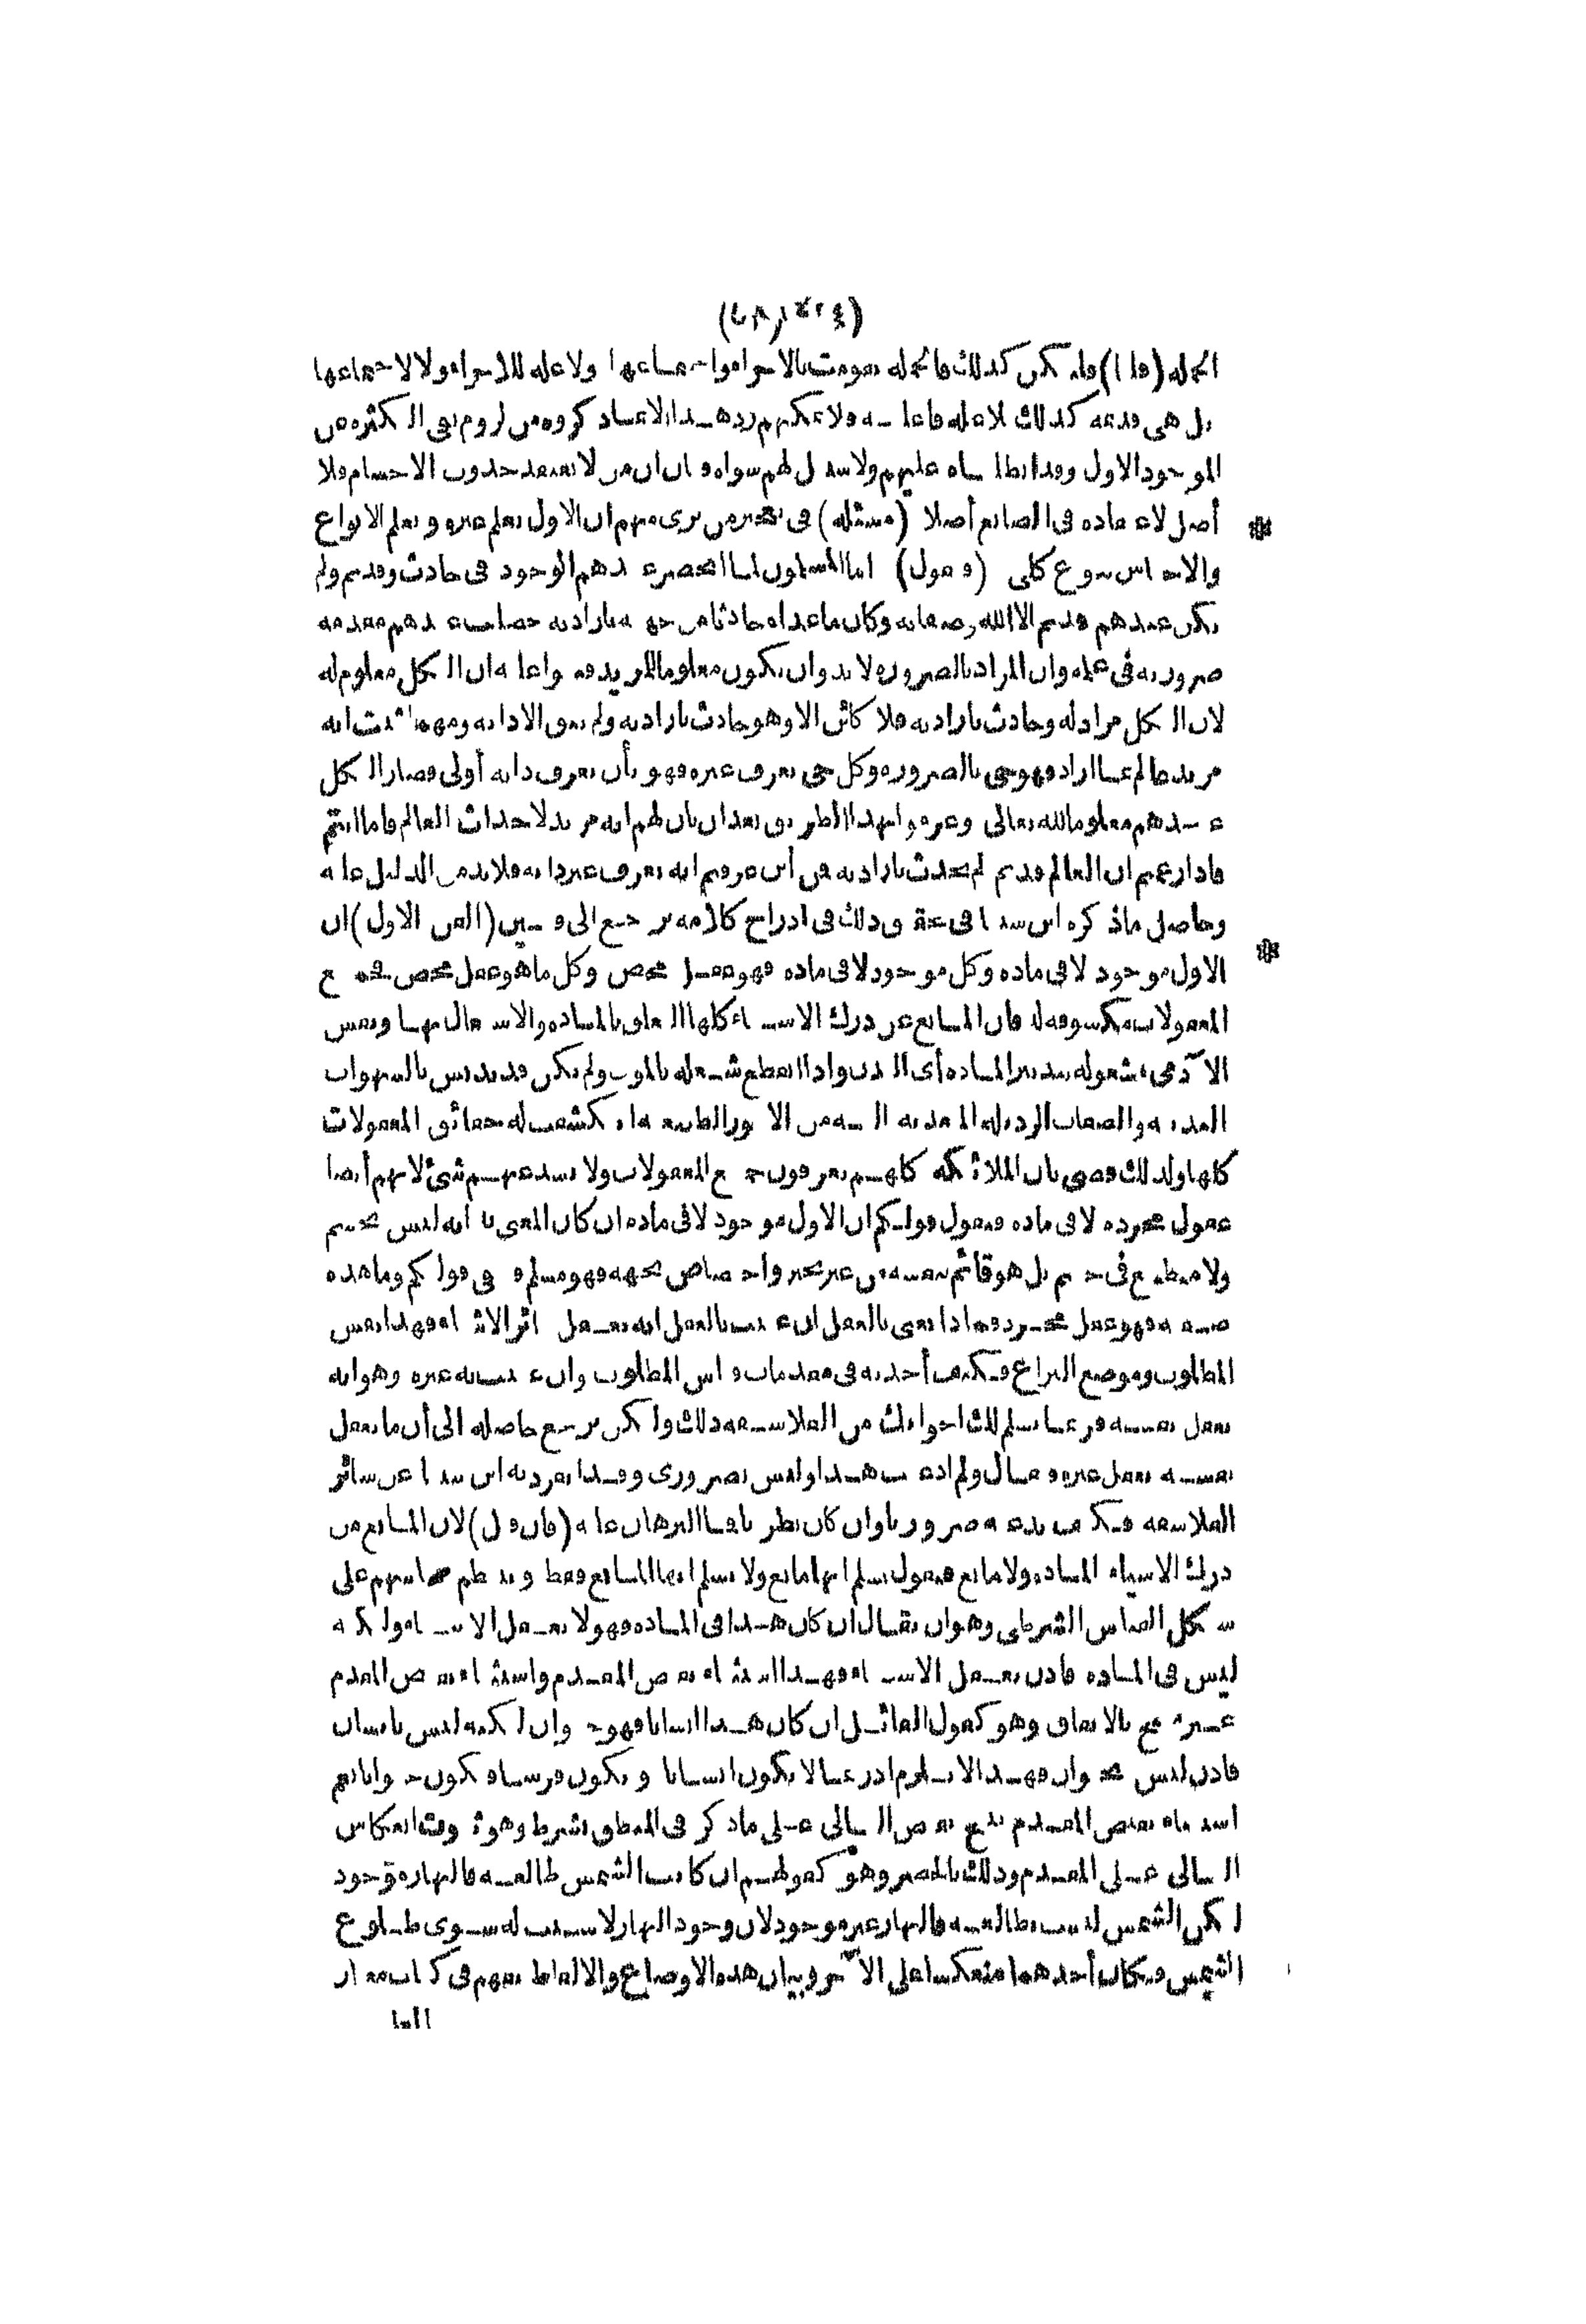 الجملة (قلنا) فليكن كذلك فالجملة تقومت بالاجزاء واجتماعها ولا علة للاجزاء ولا لاجتماعها
بل هي قديمة كذلك بلا علة فاعلية فلا يمكنهم رد هذا الا بما ذكروه من لزوم نفي الكثرة عن
الموجود الاول وقد ابطلناه عليهم ولا سبيل لهم سواه فبان ان من لا يعتقد حدوث الاجسام فلا
أصل لاعتقاده في الصانع أصلا (مسئلة) في تعجيز من يرى منهم ان الاول يعلم غيره ويعلم الانواع
والاجناس بنوع كلي (فنقول) اما المسلمون لما انحصر عندهم الوجود في حادث وقديم ولم
يكن عندهم قديم الا الله وصفاته وكان ما عداه حادثا من جهته بارادته حصلت عندهم مقدمة
ضرورية في علمه وان المراد بالضرورة لا بد وان يكون معلوما للمريد فبنوا عليه ان الكل معلوم له
لان الكل مراد له وحادث بارادته فلا كائن الا وهو حادث بارادته ولم يبق الا ذاته ومهما ثبت انه
مريد عالم بما اراد فهو حي بالضرورة وكل حي يعرف غيره فهو بأن يعرف ذاته أولى فصار الكل
عندهم معلوما لله تعالى وعرفوا بهذا الطريق بعد ان بان لهم انه مريد لاحداث العالم فاما انتم
فاذا زعمتم ان العالم قديم لم يحدث بارادته فمن أين عرفتم انه يعرف غير ذاته فلا بد من الدليل عليه
وحاصل ما ذكره ابن سينا في تحقيق ذلك في ادراج كلامه يرجع الى فنين (الفن الاول) ان
الاول موجود لا في مادة وكل موجود لا في مادة فهو عقل محض وكل ما هو عقل محض فجميع
المعقولات مكشوفة له فان المانع عن درك الاشياء كلها التعلق بالمادة والاشتغال بها ونفس
الآدمي مشغولة بتدبير المادة أي البدن واذا انقطع شغله بالموت ولم يكن قد تدنس بالشهوات
البدنية والصفات الرذيلة المتعدية اليه من الامور الطبيعية انكشف له حقائق المعقولات
كلها ولذلك قضى بان الملائكة كلهم يعرفون جميع المعقولات ولا يشذ عنهم شئ لانهم أيضا
عقول مجردة لا في مادة فنقول قولكم ان الاول موجود لا في مادة ان كان المعنى به انه ليس بجسم
ولا منطبع في جسم بل هو قائم بنفسه من غير تحيز واختصاص بجهة فهو مسلم فبقي قولكم وما هذه
صفته فهو عقل مجرد فماذا تعنى بالعقل ان عنيت بالعقل انه يعقل سائر الاشياء فهذا نفس
المطلوب وموضع النزاع فكيف أخذته في مقدمات قياس المطلوب وان عنيت به غيره وهو انه
يعقل نفسه فربما يسلم لك اخوانك من الفلاسفة ذلك ولكن يرجع حاصله الى أن ما يعقل
نفسه يعقل غيره فيقال ولم ادعيت هذا وليس بضروري وقد انفرد به ابن سينا عن سائر
الفلاسفة فكيف تدعيه ضروريا وان كان نظريا فما البرهان عليه (فان قيل) لان المانع من
درك الاشياء المادة ولا مانع فنقول نسلم انها مانع ولا نسلم انها المانع فقط وينتظم قياسهم على
شكل القياس الشرطي وهو ان يقال ان كان هذا في المادة فهو لا يعقل الاشياء ولكنه
ليس في المادة فاذن يعقل الاشياء فهذا استثناء نقيض المقدم واستثناء نقيض المقدم
غير منتج بالاتفاق وهو كقول القائل ان كان هذا انسانا فهو حيوان لكنه ليس بانسان
فاذن ليس بحيوان فهذا لا يلزم اذ ربما لا يكون انسانا ويكون فرسا فيكون حيوانا نعم
استثناء نقيض المقدم ينتج نقيض التالي على ما ذكر في المنطق بشرط وهو ثبوت انعكاس
التالي على المقدم وذلك بالحصر وهو كقولهم ان كانت الشمس طالعة فالنهار موجود
لكن الشمس ليست طالعة فالنهار غير موجود لان وجود النهار لا سبب له سوى طلوع
الشمس فكان أحدهما منعكسا على الآخر وبيان هذه الاوضاع والالفاظ يفهم في كتاب معيار